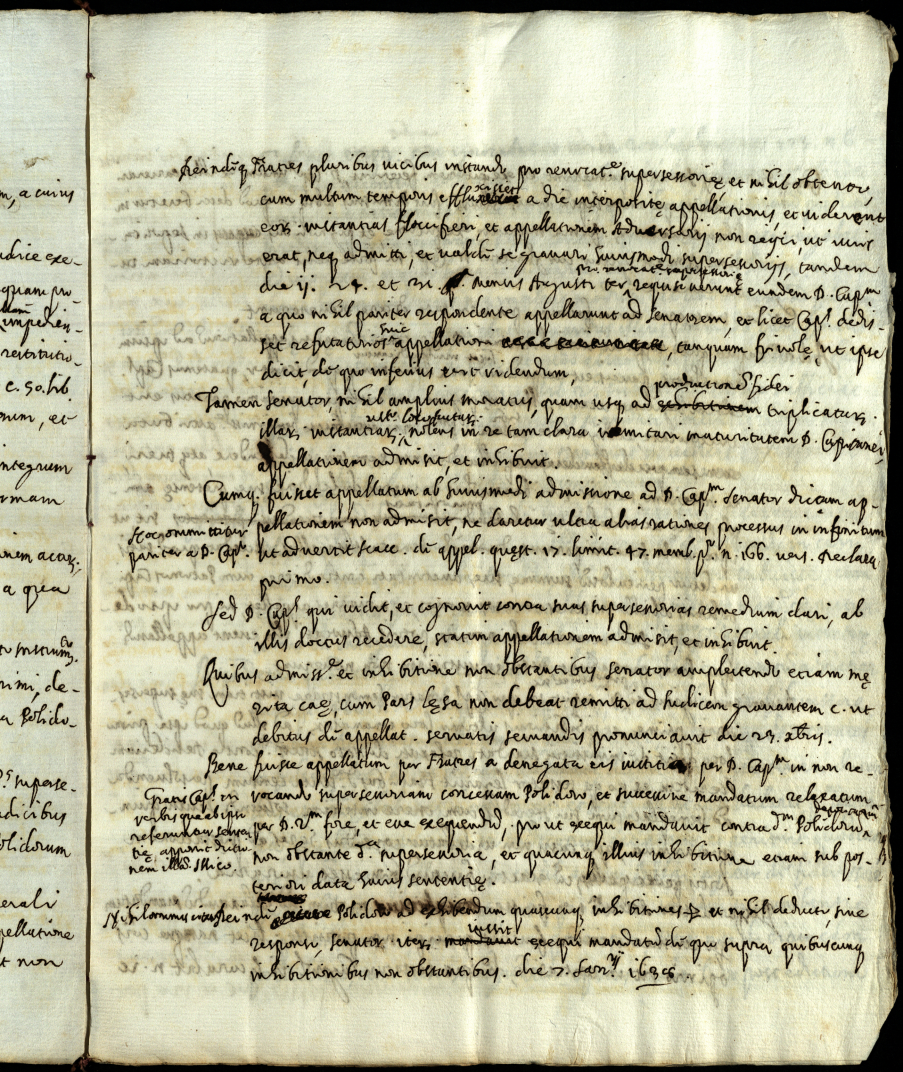 m, a cuius
udice exe-
quam pro-
impedien-
restitutio-
c. 50. lib
onum, et
integrum
ormam
a qua
rimi, de-
a Polido-
superse-
udicibus
olidorum
nerali
pellatione
t non
Deindeq. Fratres pluribus vicibus instando pro revocat.e supersessorię et nihil obtento,
cum multum temporis effluxisset a die interpositę appellationis, et viderent
eor. instantias flocci fieri, et appellationem Adversarij non reijci, ut iuris
erat, neq. admitti, et valde se gravari huiusmodi supersessorijs, tandem
pro revocat.e supersessorię
die 17. 24. et 31. mensis Augusti ter requisiverunt eundem D. Cap.m
a quo nihil pariter respondente appellarunt ad senatorem, et licet Cap.s dedis-
set refutatorios huic appellationi, tanquam frivolę, ut ipse
dicit, de quo inferius erit videndum,
productione fidei
Tamen senator, nihil amplius moratus, quam usq. ad exhibitionem triplicatar.
illar. instantiar., nolens in re tam clara imitari maturitatem D. Capitanei,
appellationem admisit, et inhibuit.
Cumq. fuisset appellatum ab huiusmodi admissione ad D. Cap.m senator dictam ap-
pellationem non admisit, ne daretur ultra alias rationes processus in infinitum
ut advertit Scacc. de appel. quęst. 17. limit. 47. memb. p.o n. 166. vers. Declara
primo.
Hoc ommittitur
pariter a D. Cap.o
Sed D. Cap.s qui vidit, et cognovit contra suas supersessorias remedium dari, ab
illis doctus recedere, statim appellationem admisit, et inhibuit.
Quibus admiss.e et inhibitione non obstantibus senator amplectendo etiam me-
rita caę, cum Pars lęsa non debeat remitti ad Iudicem gravantem c. ut
debitus de appellat. servatis servandis pronunciavit die 23. Xbris.
Bene fuisse appellatum per Fratres a denegata eis iustitia per D. Cap.m in non re-
vocando supersessoriam concessam Polidoro, et successive mandatum relaxatum
per D. V.m fore, et esse exequendum, prout exequi mandavit contra d.m Polidorum
non obstante d.a supersessoria, et quacunq. illius inhibitione etiam sub pos-
teriori data huius sententię.
Gratis Cap.s in
verbis quę ab ipso
referuntur senten-
tię, apponit dictio-
nem illam. Illico.
Nihilominus Polidoro ad exhibendum quascunq. inhibitiones et nihil deducto, sive
iussit
responso, senator iter. mandavit exequi mandatum de quo supra quibuscunq.
inhibitionibus non obstantibus. die 7. Ianr.ij 1638.